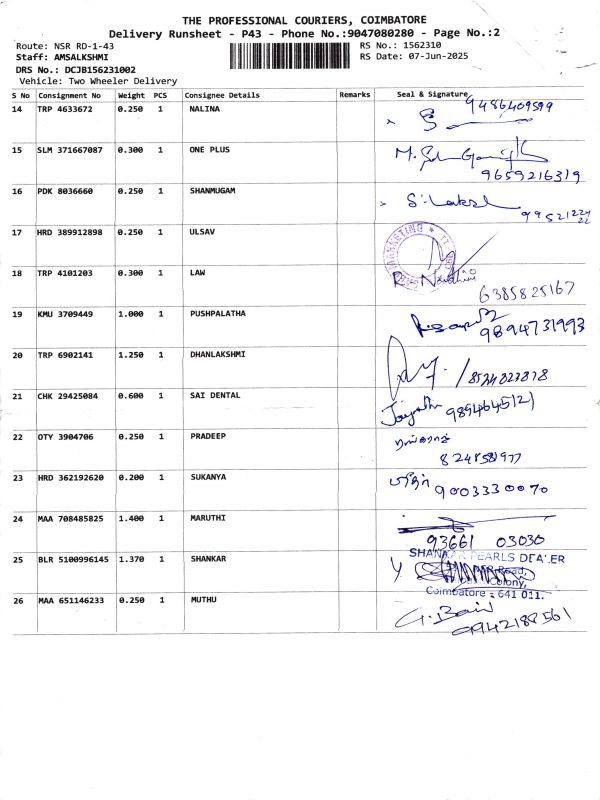 THE PROFESSIONAL COURIERS, COIMBATORE
Delivery Runsheet - P43 - Phone No.:9047080280 - Page No.:2
Route: NSR RD-1-43
RS No.: 1562310
Staff: AMSALKSHMI
RS Date: 07-Jun-2025
DRS No.: DCJB156231002
Vehicle: Two Wheeler Delivery
S No Consignment No Weight PCS Consignee Details Remarks Seal & Signature
9486409599
14 TRP 4633672 0.250 1 NALINA
15 SLM 371667087 0.300 1 ONE PLUS
9659216319
16 PDK 8036660 0.250 1 SHANMUGAM
17 HRD 389912898 0.250 1 ULSAV
MARKETING
18 TRP 4101203 0.300 1 LAW
6385825167
19 KMU 3709449 1.000 1 PUSHPALATHA
9894731993
20 TRP 6902141 1.250 1 DHANLAKSHMI
21 CHK 29425084 0.600 1 SAI DENTAL
22 OTY 3904706 0.250 1 PRADEEP
23 HRD 362192620 0.200 1 SUKANYA
9003330070
24 MAA 708485825 1.400 1 MARUTHI
93661 03030
25 BLR 5100996145 1.370 1 SHANKAR
SHANKAR PEARLS DEALER
Road,
Colony,
Coimbatore - 641 011.
26 MAA 651146233 0.250 1 MUTHU
9942188561